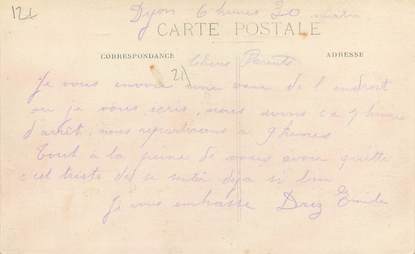 126
Dyon 6 heures 30 matin
CARTE POSTALE
CORRESPONDANCE
ADRESSE
Chers Parents
21
Je vous envoie une vue de l'endroit
ou je vous écris, nous avons 2 heures
d'arrêt, nous repartirons a 9 heures
Tout a la peine de vous avoir quitté
c'est triste de se sentir déja si loin
Je vous embrasse Drez Emile